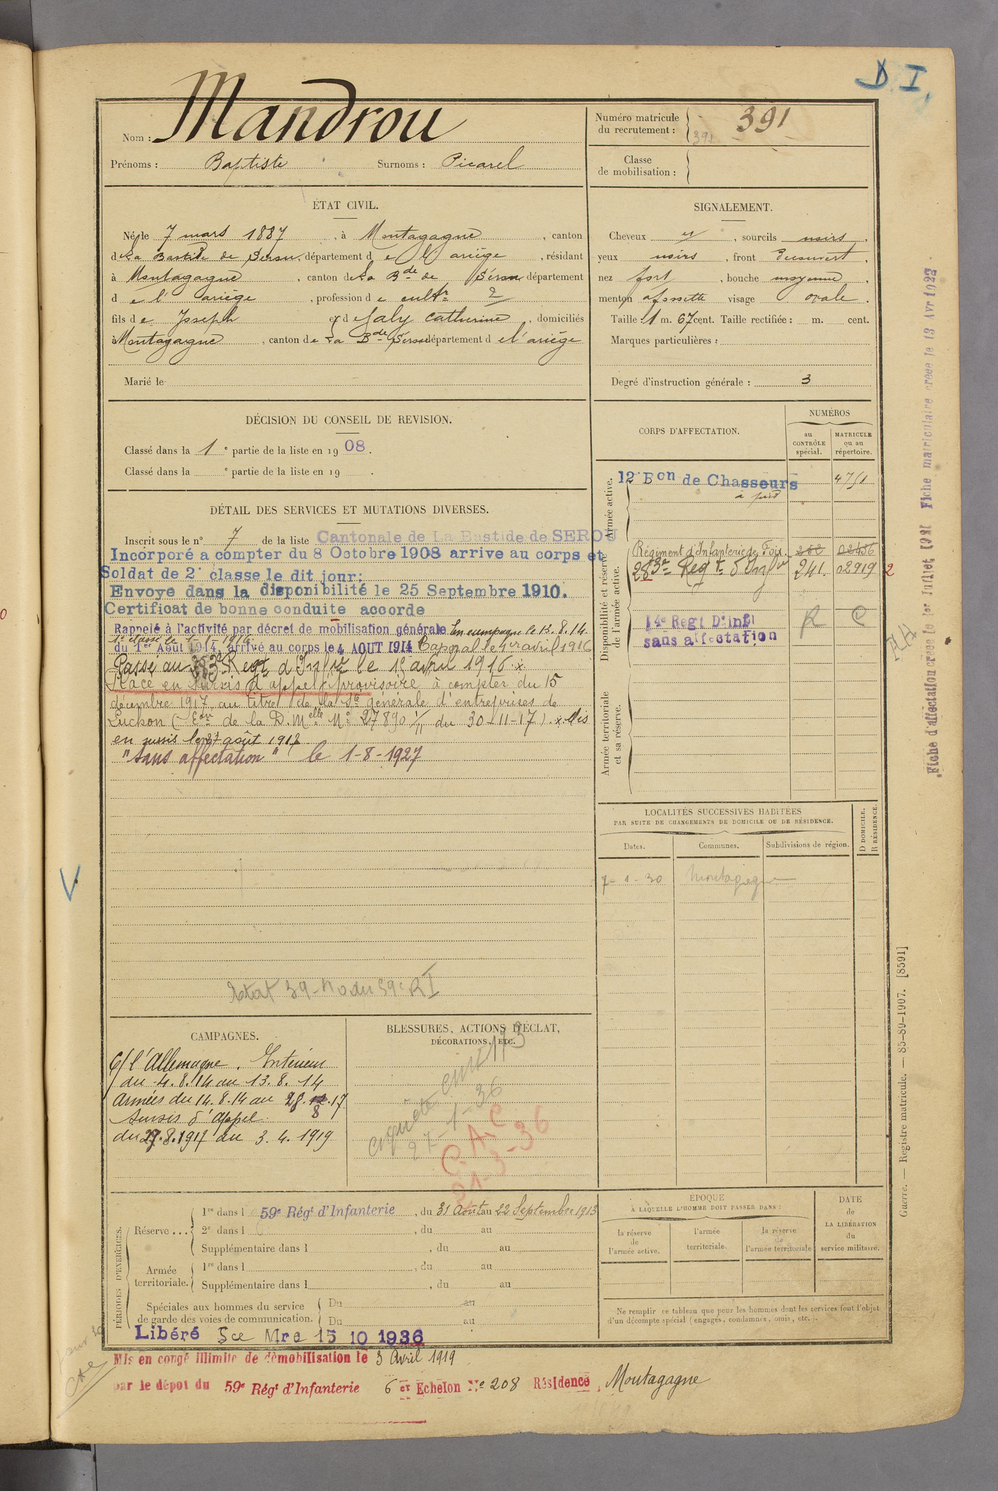 D I.
Nom : Mandrou
Prénoms : Baptiste Surnoms : Picarel
Numéro matricule du recrutement : 391
391
Classe de mobilisation :
ÉTAT CIVIL.
Né le 7 mars 1887, à Montagagne, canton
de La Bastide de Sérou, département de l'ariège, résidant
à Montagagne, canton de La Bde de Sérou département
de l'ariège, profession de cultr 2
fils de Joseph et de Galy Catherine, domiciliés
à Montagagne, canton de La Bde Serou département de l'ariège
Marié le
SIGNALEMENT.
Cheveux et, sourcils noirs.
yeux noirs, front Découvert,
nez fort, bouche moyenne,
menton a fossette visage ovale.
Taille 1 m. 67 cent. Taille rectifiée : m. cent.
Marques particulières :
Degré d'instruction générale : 3
DÉCISION DU CONSEIL DE REVISION.
Classé dans la 1e partie de la liste en 1908.
Classé dans la e partie de la liste en 19
DÉTAIL DES SERVICES ET MUTATIONS DIVERSES.
Inscrit sous le n° 7 de la liste Cantonale de La Bastide de SEROU
Incorporé a compter du 8 Octobre 1908 arrive au corps et
Soldat de 2e classe le dit jour;
Envoye dans la disponibilité le 25 Septembre 1910.
Certificat de bonne conduite accorde
Rappelé à l'activité par décret de mobilisation générale En campagne le 13.8.14.
1e classe le 1-1-1916
du 1er Août 1914, arrivé au corps le 4 AOUT 1914 Caporal le 1er avril 1916
Passé au 283e Regt d'Infrie le 1e avril 1916 x
Place en sursis d'appel provisoire, à compter du 15
décembre 1917 au titre de la Sté générale d'entreprises de
Luchon ( de la D.M. No 27890 du 30-11-17). x Mis
en sursis le 27 août 1917
"sans affectation" le 1-8-1927
CORPS D'AFFECTATION.
NUMÉROS
au CONTRÔLE spécial.
MATRICULE ou au répertoire.
Armée active.
12e Bon de Chasseurs
à pied
4751
Disponibilité et réserve de l'armée active.
Régiment d'Infanterie de Foix. 02456
283e Regt d'Infrie 241. 02919 2
14e Regt D'Infl
sans affectation
R C
Armée territoriale et sa réserve.
LOCALITÉS SUCCESSIVES HABITÉES
PAR SUITE DE CHANGEMENTS DE DOMICILE OU DE RÉSIDENCE.
Dates. Communes. Subdivisions de région. D DOMICILE. R RÉSIDENCE.
7-1-30 Montagagne
Fiche d'affectation créée le 1er Juillet 1931 Fiche matriculaire créée le 13 Avr 1923
CAMPAGNES.
C/ l'Allemagne. Intérieur
du 4.8.14 au 13.8.14
Armées du 14.8.14 au 28.8.17
Sursis d'Appel
du 29.8.1917 au 3.4.1919
BLESSURES, ACTIONS D'ÉCLAT,
DÉCORATIONS, ETC.
27-1-36
C.A.C
21-3-36
PÉRIODES D'EXERCICES.
Réserve ... 1re dans l 59e Régt d'Infanterie, du 31 Aout au 22 Septembre 1913
2e dans l , du au
Supplémentaire dans l , du au
Armée territoriale. 1re dans l , du au
Supplémentaire dans l , du au
Spéciales aux hommes du service de garde des voies de communication. Du au
Du au
Libéré Sce Mre 15 10 1936
ÉPOQUE
À LAQUELLE L'HOMME DOIT PASSER DANS :
la réserve de l'armée active.
l'armée territoriale.
la réserve de l'armée territoriale
DATE de LA LIBÉRATION du service militaire.
Ne remplir ce tableau que pour les hommes dont les services font l'objet
d'un décompte spécial (engagés, condamnés, omis, etc.).
Mis en congé illimité de démobilisation le 3 Avril 1919
par le dépôt du 59e Régt d'Infanterie 6 er Echelon No 208 Résidence, Montagagne
Guerre. — Registre matricule. — 85-89-1907. [8591]